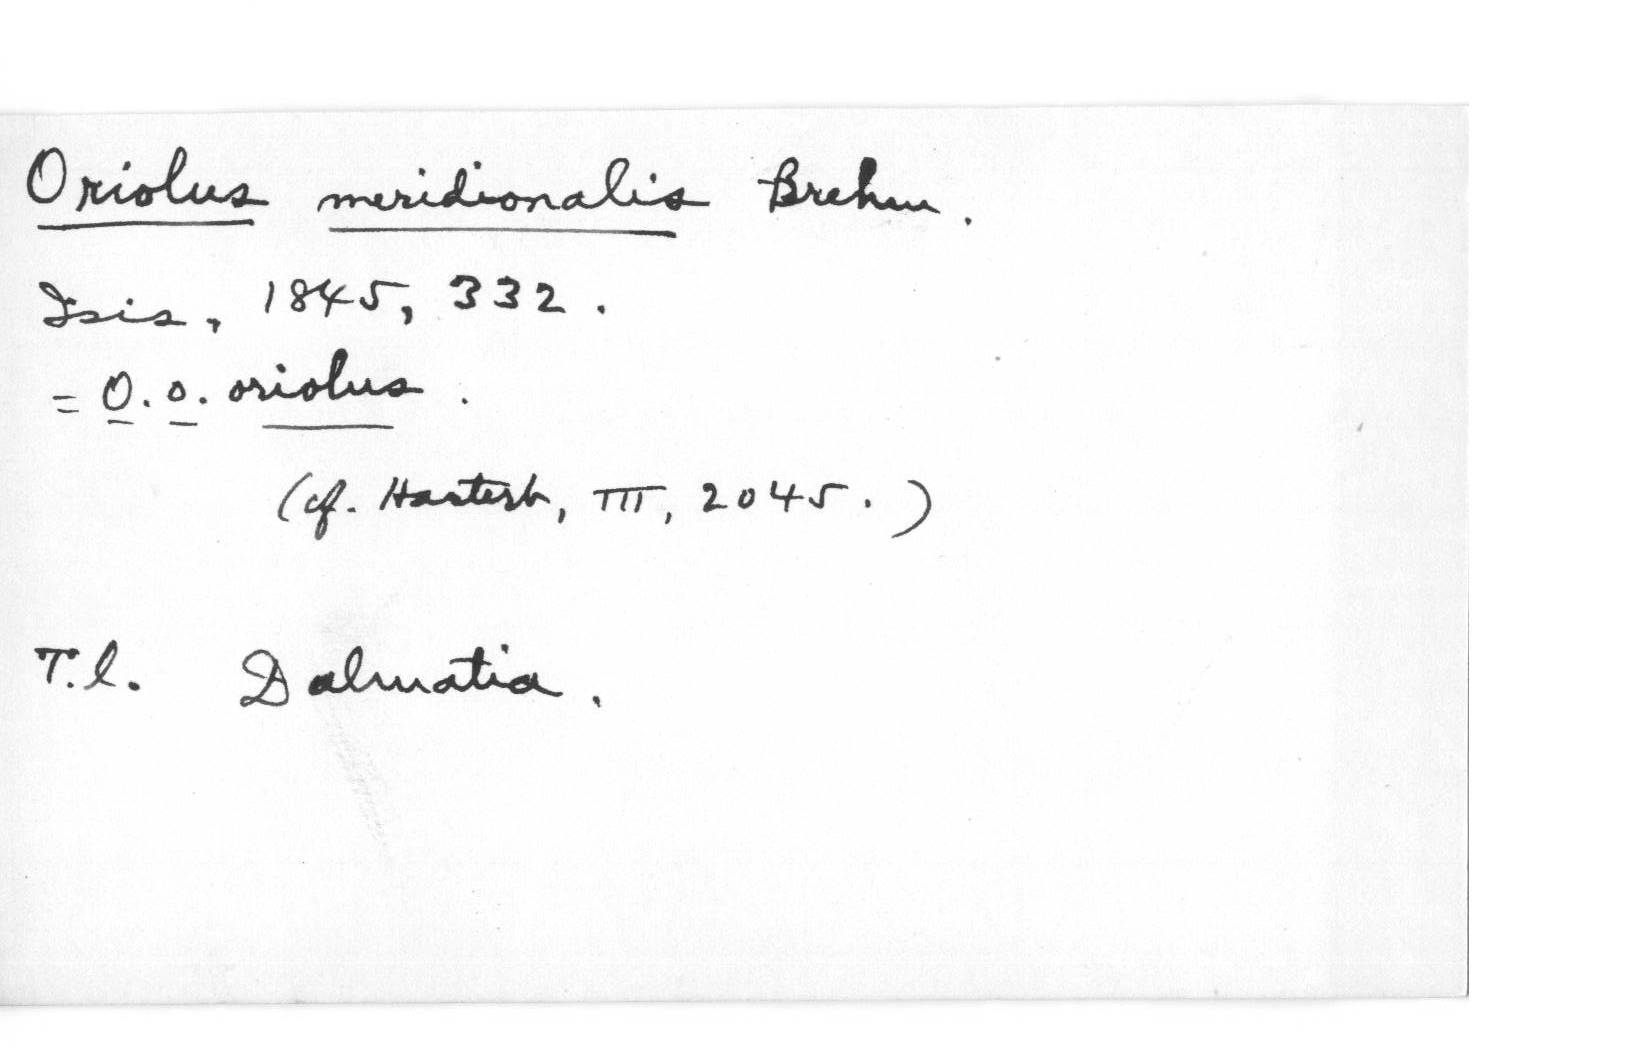 Oriolus meridionalis Brehm.
Isis, 1845, 332.
= O. o. oriolus.
(cf. Hartert, III, 2045.)
T.l. Dalmatia.